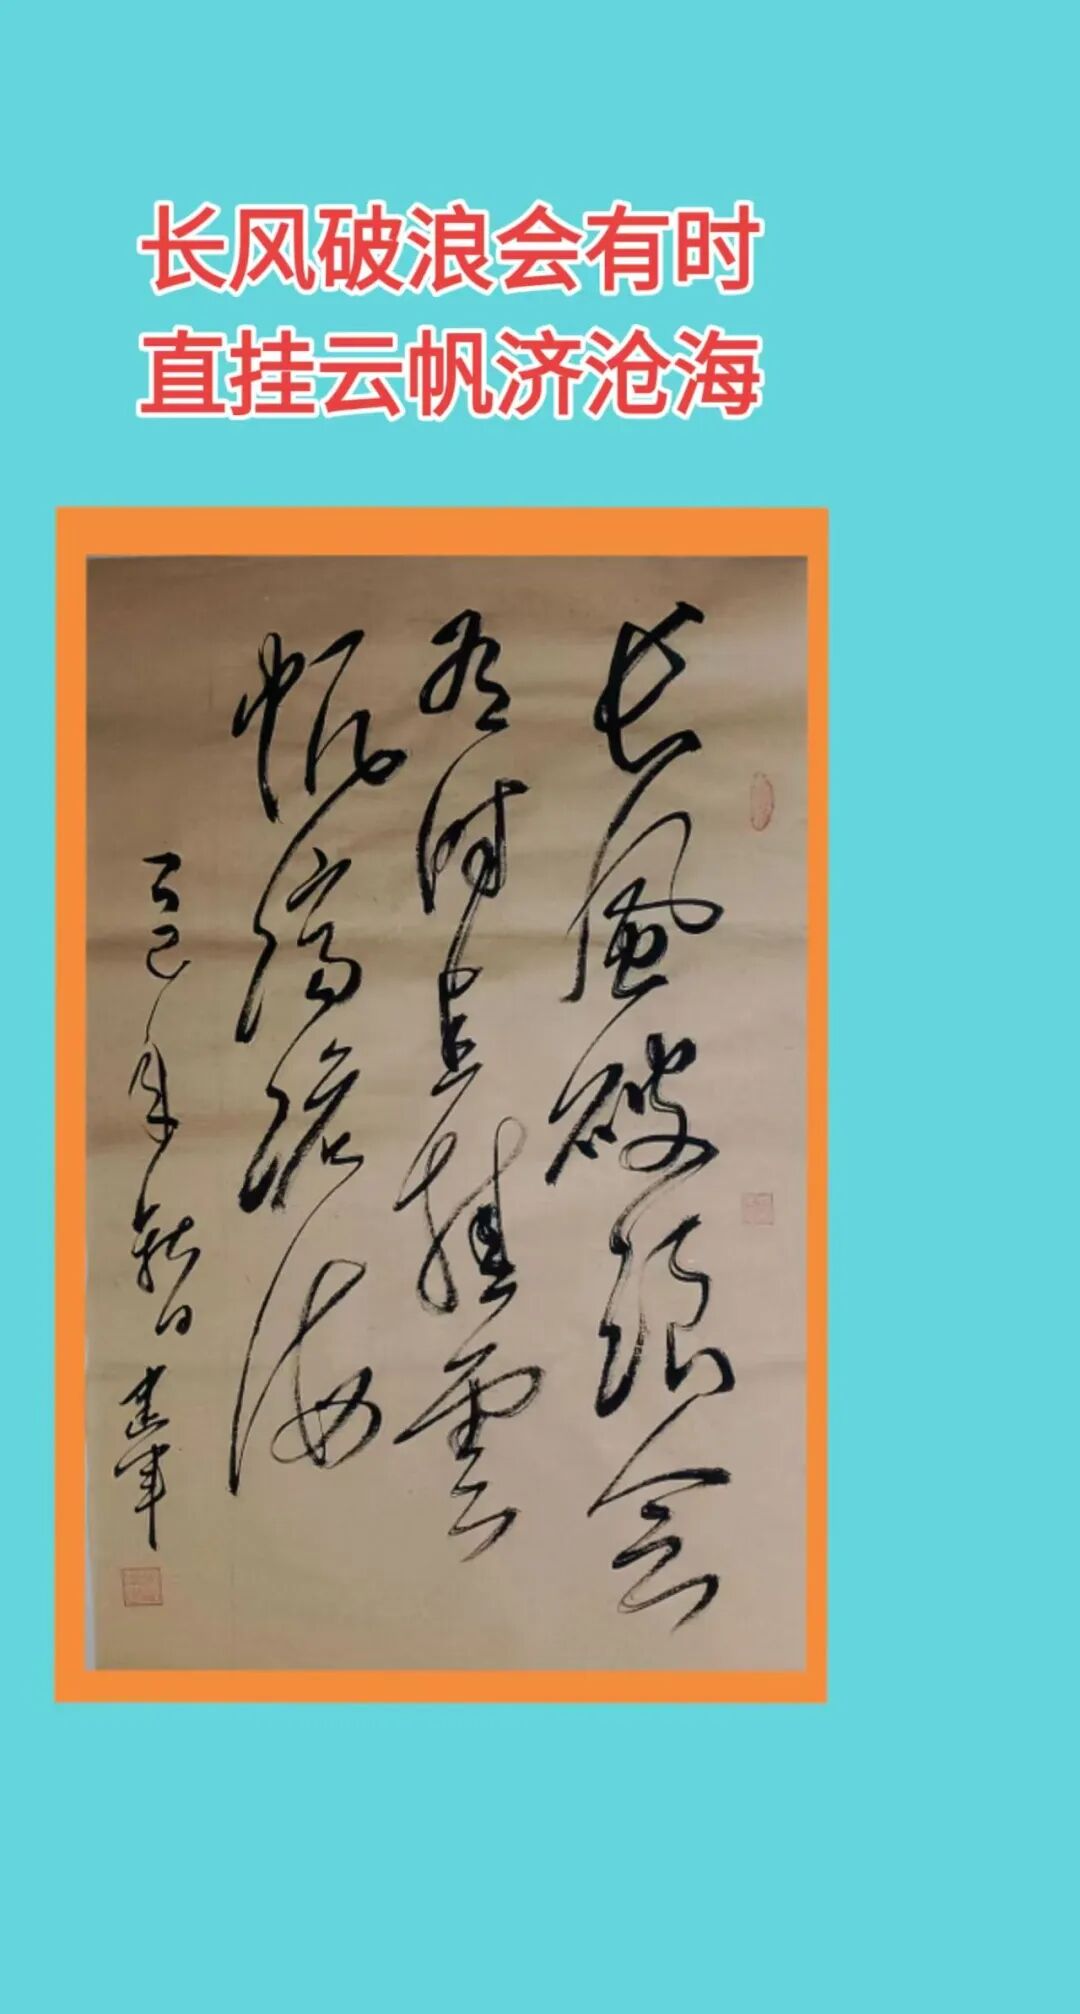 长风破浪会有时
直挂云帆济沧海
长風破浪会
有时直挂雲
帆济沧海
乙巳年秋日建军